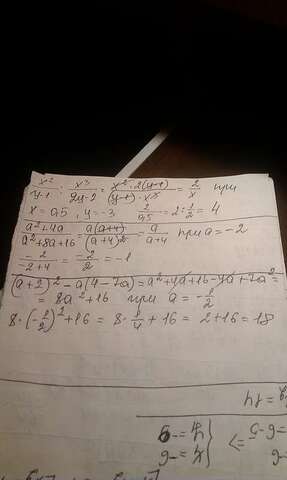 x²/(y-1) : x³/(2y-2) = x²·2(y-1)/((y-1)·x³) = 2/x при
x = 0,5, y = -3 2/0,5 = 2 : 1/2 = 4
(a²+4a)/(a²+8a+16) = a(a+4)/(a+4)² = a/(a+4) при a = -2
-2/(-2+4) = -2/2 = -1
(a+2)² - a(4-7a) = a²+4a+16-4a+7a² =
= 8a²+16 при a = -1/2
8·(-1/2)²+16 = 8·1/4 + 16 = 2+16 = 18